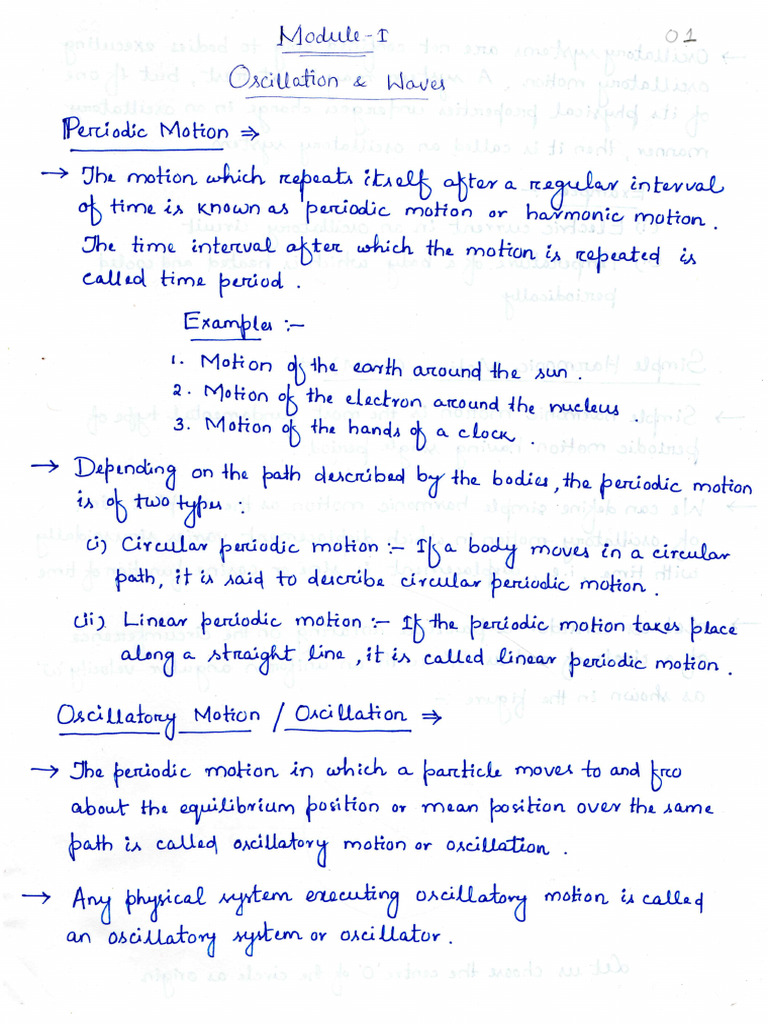 Module-I
01
Oscillation & Waves
Periodic Motion ⇒
→ The motion which repeats itself after a regular interval
of time is known as periodic motion or harmonic motion.
The time interval after which the motion is repeated is
called time period.
Examples :-
1. Motion of the earth around the sun.
2. Motion of the electron around the nucleus.
3. Motion of the hands of a clock.
→ Depending on the path described by the bodies, the periodic motion
is of two types:
(i) Circular periodic motion :- If a body moves in a circular
path, it is said to describe circular periodic motion.
(ii) Linear periodic motion :- If the periodic motion takes place
along a straight line, it is called linear periodic motion.
Oscillatory Motion / Oscillation ⇒
→ The periodic motion in which a particle moves to and fro
about the equilibrium position or mean position over the same
path is called oscillatory motion or oscillation.
→ Any physical system executing oscillatory motion is called
an oscillatory system or oscillator.